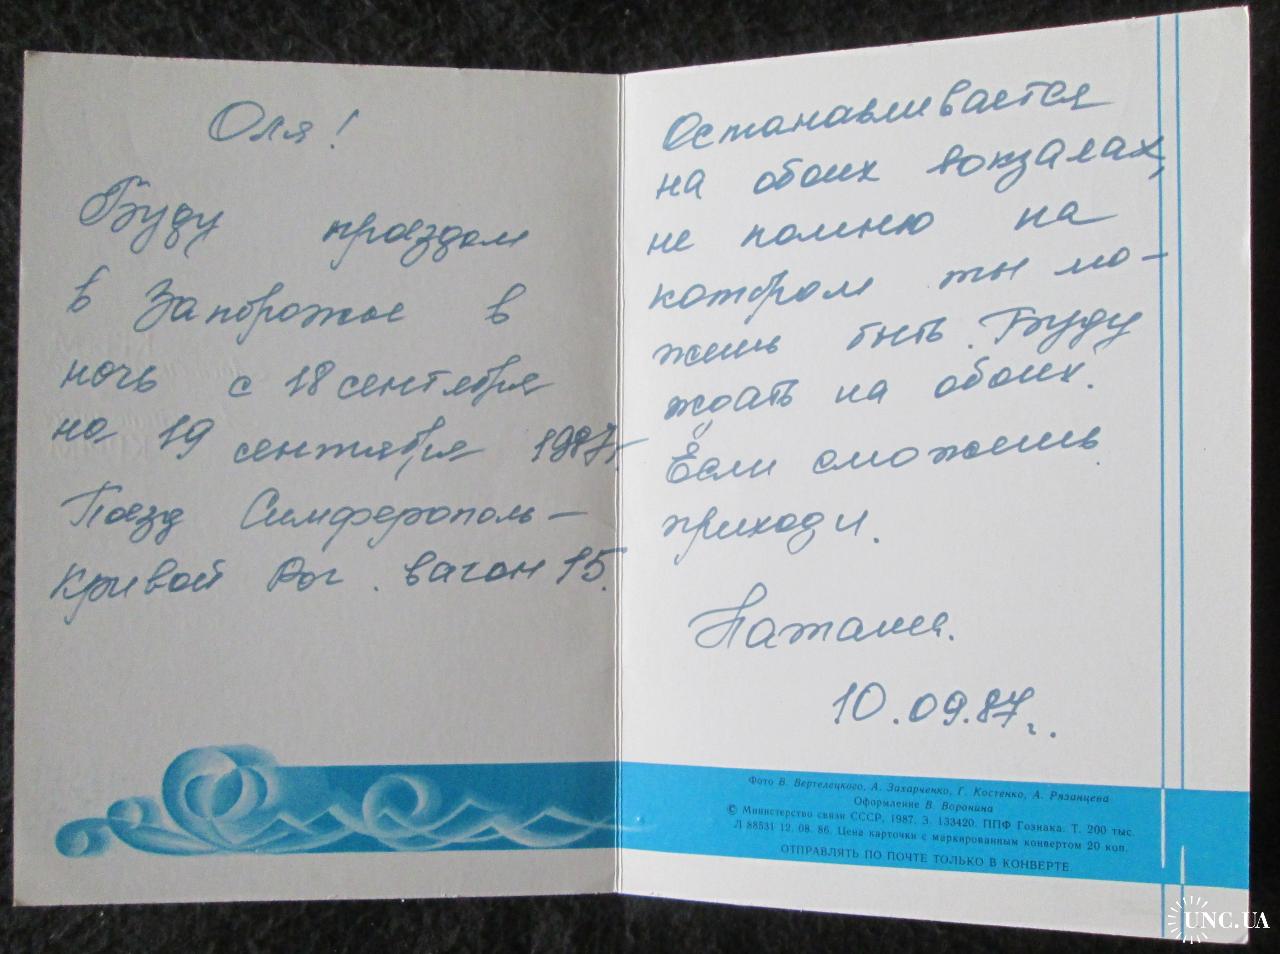 Оля!
Буду проездом
в Запорожье в
ночь с 18 сентября
на 19 сентября 1987г.
Поезд Симферополь-
Кривой Рог. вагон 15.
Останавливается
на обоих вокзалах,
не помню на
котором ты мо-
жешь быть. Буду
ждать на обоих.
Если сможешь
приходи.
Наташа.
10.09.87г.
Фото В. Вертелецкого, А. Захарченко, Г. Костенко, А. Рязанцева
Оформление В. Воронина
© Министерство связи СССР, 1987. З. 133420. ППФ Гознака. Т. 200 тыс.
Л 88531 12. 08. 86. Цена карточки с маркированным конвертом 20 коп.
ОТПРАВЛЯТЬ ПО ПОЧТЕ ТОЛЬКО В КОНВЕРТЕ
UNC.UA